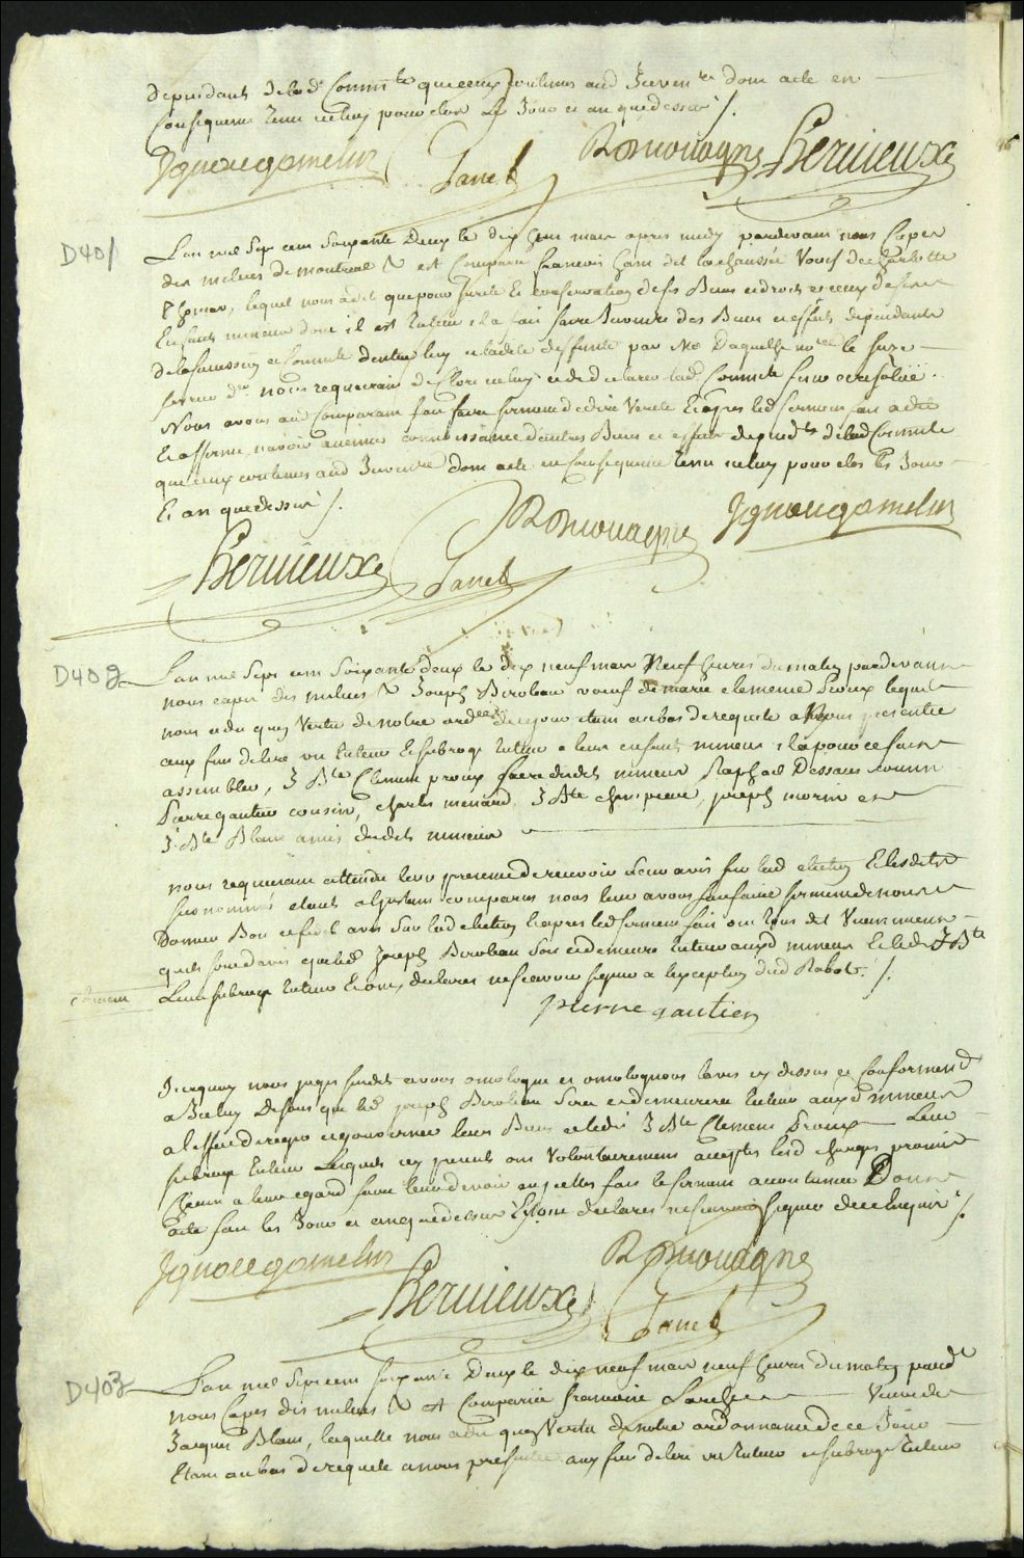 dependants de lad. Comm.té que ceux contenus aud Inven.re dont acte en
Consequence tenu iceluy pour clos Les Jour et an que dessus ./.
Ignace gamelin Panet RDecouagne Hervieux
D401
L'an mil Sept cent Soixante Deux le dix huit mars apres midy pardevant nous Capes
des milices de montreal & est Comparu francois ham dit lachaussée Veuf de charlotte
Thomas, lequel nous a dit que pour Surete et conservation de ses Biens et droits et ceux de ses
Enfants mineurs dont il est tuteur il a fait faire Inventre des Biens et effets dependants
de la Succession et Commté d'entre luy et ladite deffunte par Me Daguilhe no.re le Seize
nous requerant de Clore iceluy et de declarer lad Commté
Nous avons aud Comparant fait faire serment de dire Verité Et apres led Serment fait a dit
Et affirmé n'avoir aucune connoissance d'autres Biens et effets depend.ts de lad Commté
que ceux contenus aud Inventre dont acte en Consequence tenu iceluy pour clos les Jour
Et an que dessus ./.
RDecouagne Ignace gamelin
Hervieux Panet
D402
L'an mil Sept cent Soixante deux le dix neuf mars Neuf heures du matin pardevant
nous capes des milices & Joseph Birobeau veuf de marie clemence Proux lequel
nous a dit qu'en Vertu de notre ord.ce de ce jour etant au bas de requete a Nous presentée
aux fins d'elire un tuteur et subrogé tuteur a leurs enfants mineurs il a pour ce fait
assembler, J B.te Clement proux frere desdits mineurs Raphael Dessaus cousin
Pierre gautier cousin, charles menard, J Bte charpentier, joseph morin et
J. Bte Blanc amis desdits mineurs
nous requerant attendu leur presence de recevoir Leur avis sur lad election Et lesdits
Susnommés etants a l'instant comparus nous leur avons fait faire serment de nous
Donner Bon et fidel avis Sur lad election et apres led serment fait ont tous dit Unanimement
qu'ils sont d'avis que led Joseph Birobeau Soit et demeure tuteur auxd mineurs Et led. J Bte
Leur subrogé tuteur Et ont declarés ne scavoir signer a l'exception dud Rabot ./.
pierre gautier
Surquoy nous juges susdits avons omologué et omologuons l'avis cy dessus et Conformem.t
a Iceluy Disons que led. joseph Birobeau Sera et demeurera tuteur auxd. mineurs
a l'effet de regir et gouverner leurs Biens et ledit J Bte Clement Proux Leur
subrogé tuteur Lesquels cy presents ont Volontairement acceptés lesd charges promis
chacun a leur egard faire leur devoir en icelles fait le serment accoutumé Dont
acte fait les Jour et an que dessus Et ont declarés ne scavoir signer de ce Enquis ./.
Ignace gamelin RDecouagne
Hervieux Panet
D403
L'an mil Sept cent soixante Deux le dix neuf mars neuf heures du matin pard.t
nous Capes des milices & est Comparüe francoise Veuve de
Jacques Blanc, laquelle nous a dit qu'en Vertu de notre ordonnance de ce Jour
Etant au bas de requete a nous presentée aux fins d'elire un tuteur et subrogé tuteur